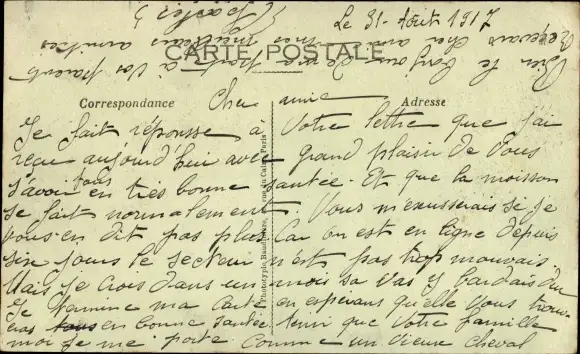 Le 31 Août 1917
CARTE POSTALE
Correspondance
Adresse
Cher amie
Je fait réponsse à Votre lettre que j'ai
reçu aujourd'hui avec grand plaisir de Vous
s'avoir tous en très bonne santée. Et que la moisson
se fait normalement. Vous m'excusserais si je
vous en dit pas plus. Car on est en ligne depuis
six jours le secteur n'est pas trop mauvais.
Mais je crois dans un mois sa vas y
Je termine ma Carte en esperans qu'elle Vous trou-
veras en bonne santée. ainsi que Votre famille
moi je me porte Comme un Vieux cheval
Bien le bonjour de ma part à vos parents
Recevais cher ami mes amitiées